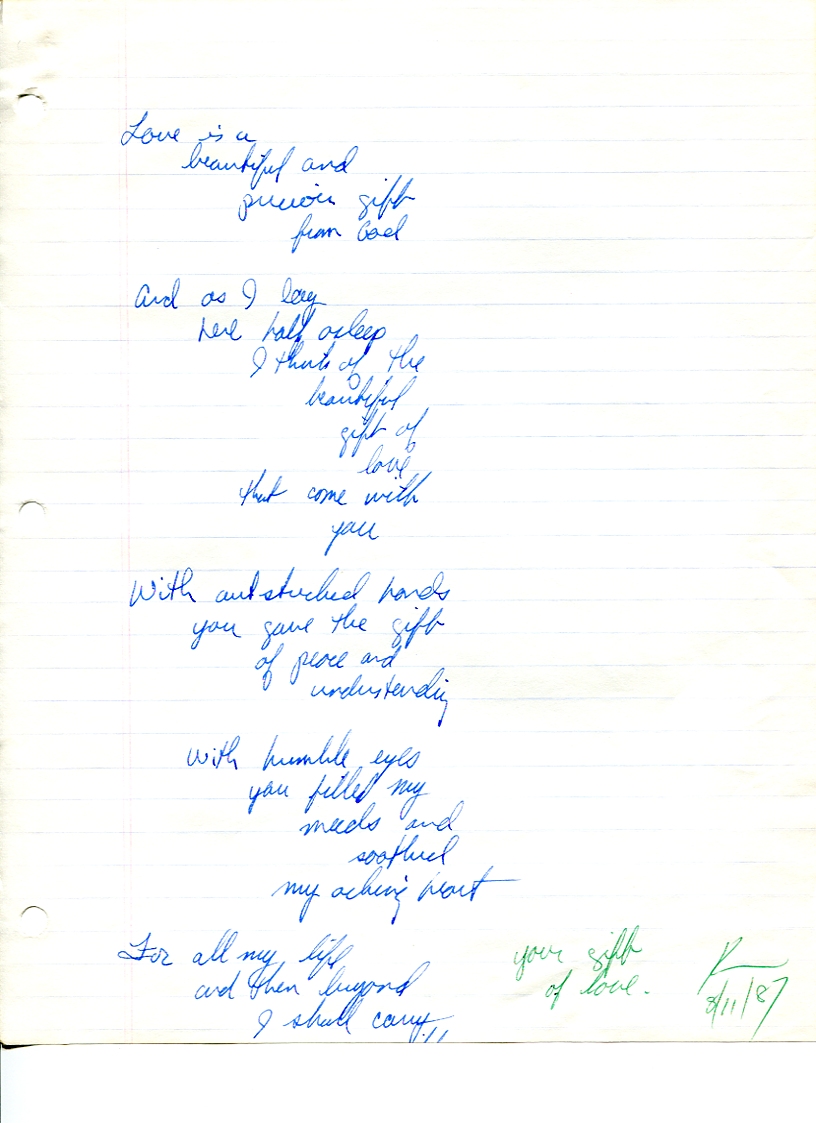 Love is a
beautiful and
precious gift
from God
And as I lay
here half asleep
I think of the
beautiful
gift of
love
that come with
you
With outstreched hands
you gave the gift
of peace and
understanding
With humble eyes
you filled my
needs and
soothed
my aching heart
For all my life
and then beyond
I shall carry,,
your gift
of love.
3/11/87